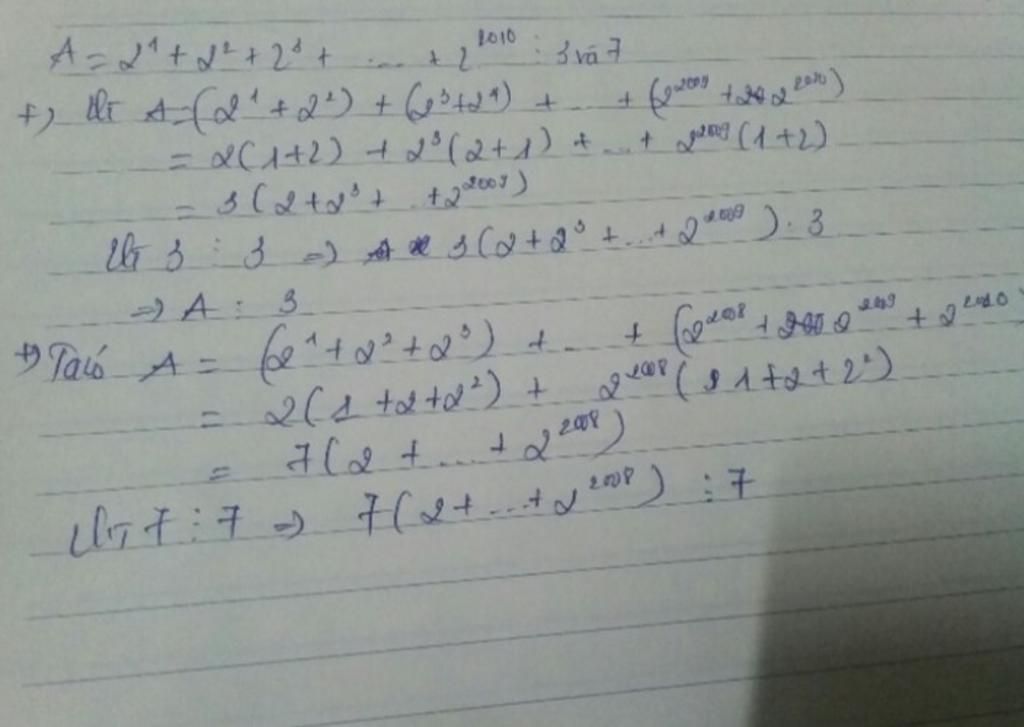 A = 2¹ + 2² + 2³ + ... + 2²⁰¹⁰ ⋮ 3 và 7
+) Vì A = (2¹ + 2²) + (2³ + 2⁴) + ... + (2²⁰⁰⁹ + 2²⁰¹⁰)
= 2(1+2) + 2³(2+1) + ... + 2²⁰⁰⁹(1+2)
= 3(2 + 2³ + ... + 2²⁰⁰⁹)
Vì 3 ⋮ 3 => 3(2 + 2³ + ... + 2²⁰⁰⁹) ⋮ 3
=> A ⋮ 3
+) Ta có A = (2¹ + 2² + 2³) + ... + (2²⁰⁰⁸ + 2²⁰⁰⁹ + 2²⁰¹⁰)
= 2(1 + 2 + 2²) + 2²⁰⁰⁸(1 + 2 + 2²)
= 7(2 + ... + 2²⁰⁰⁸)
Vì 7 ⋮ 7 => 7(2 + ... + 2²⁰⁰⁸) ⋮ 7